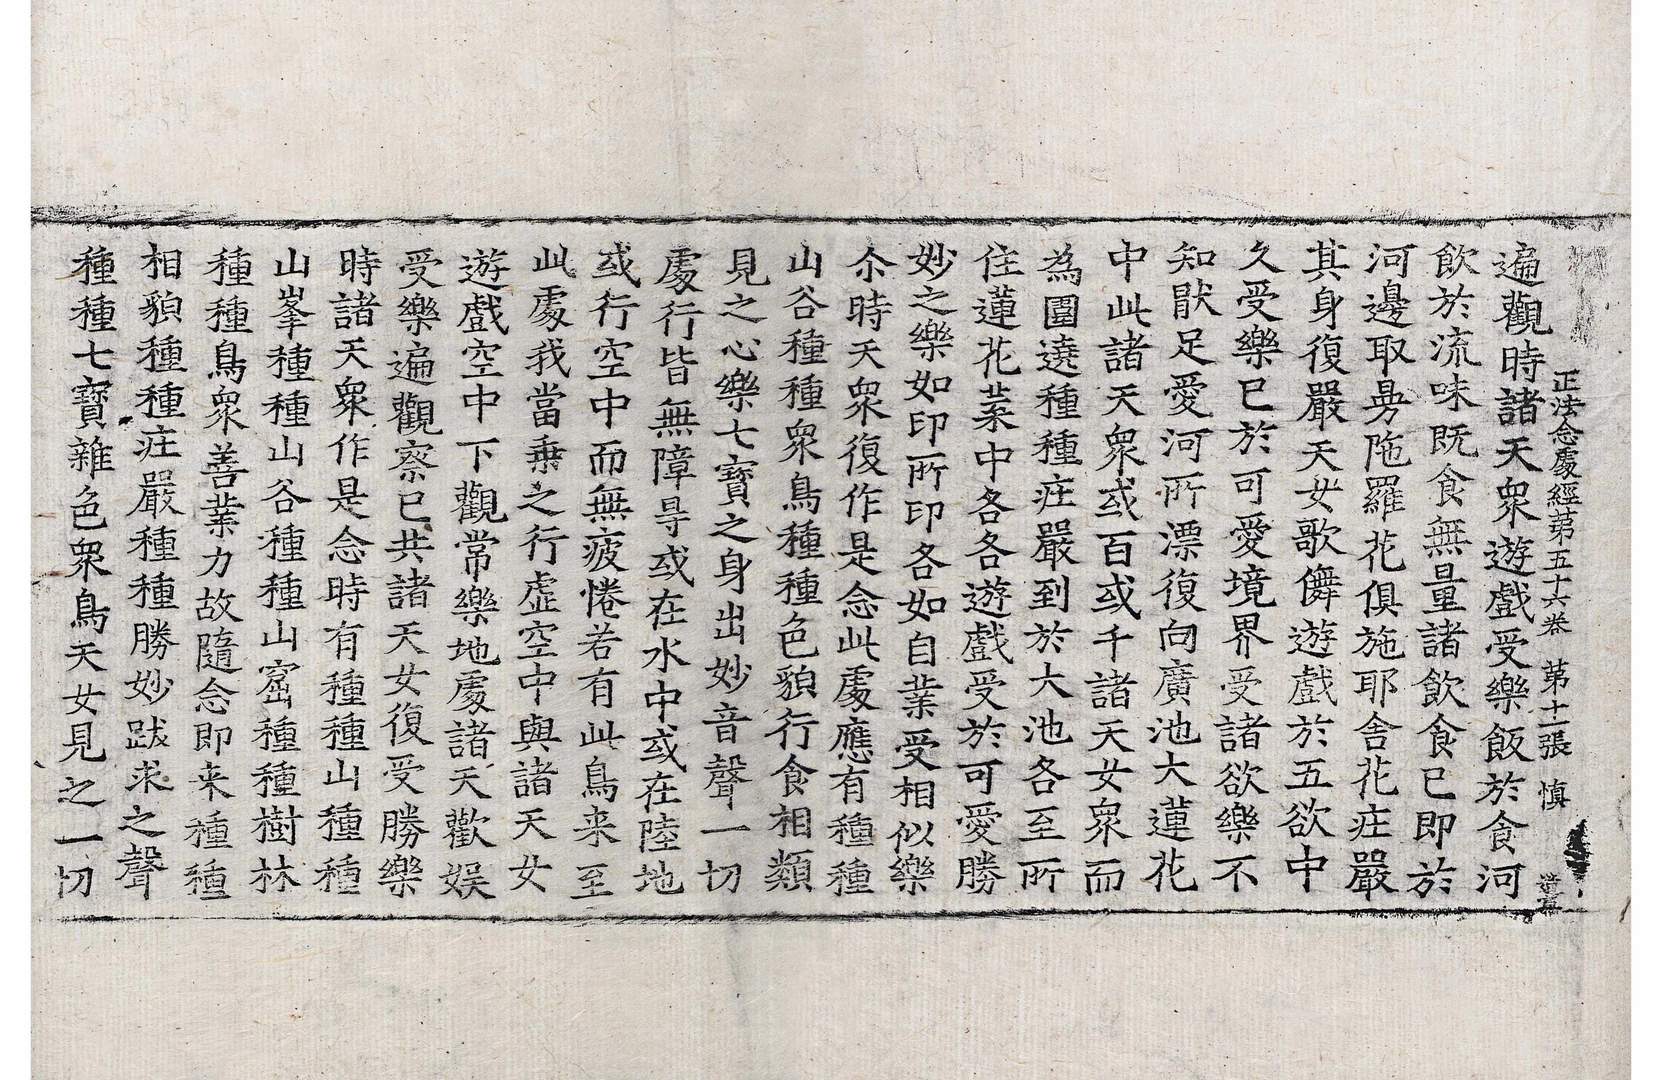 正法念處經第五十六卷 第十一張 慎
遍觀時諸天衆遊戲受樂飯於食河
飲於流味既食無量諸飲食已即於
河邊取曼陁羅花俱施耶舍花庄嚴
其身復嚴天女歌儛遊戲於五欲中
久受樂已於可愛境界受諸欲樂不
知猒足愛河所漂復向廣池大蓮花
中此諸天衆或百或千諸天女衆而
為圍遶種種庄嚴到於大池各至所
住蓮花葉中各各遊戲受於可愛勝
妙之樂如印所印各如自業受相似樂
尒時天衆復作是念此處應有種種
山谷種種衆鳥種種色貌行食相類
見之心樂七寶之身出妙音聲一切
處行皆無障㝵或在水中或在陸地
或行空中而無疲惓若有此鳥来至
此處我當乗之行虛空中與諸天女
遊戲空中下觀常樂地處諸天歡娛
受樂遍觀察已共諸天女復受勝樂
時諸天衆作是念時有種種山種種
山峯種種山谷種種山窟種種樹林
種種鳥衆善業力故隨念即来種種
相貌種種庄嚴種種勝妙跋求之聲
種種七寶雜色衆鳥天女見之一切